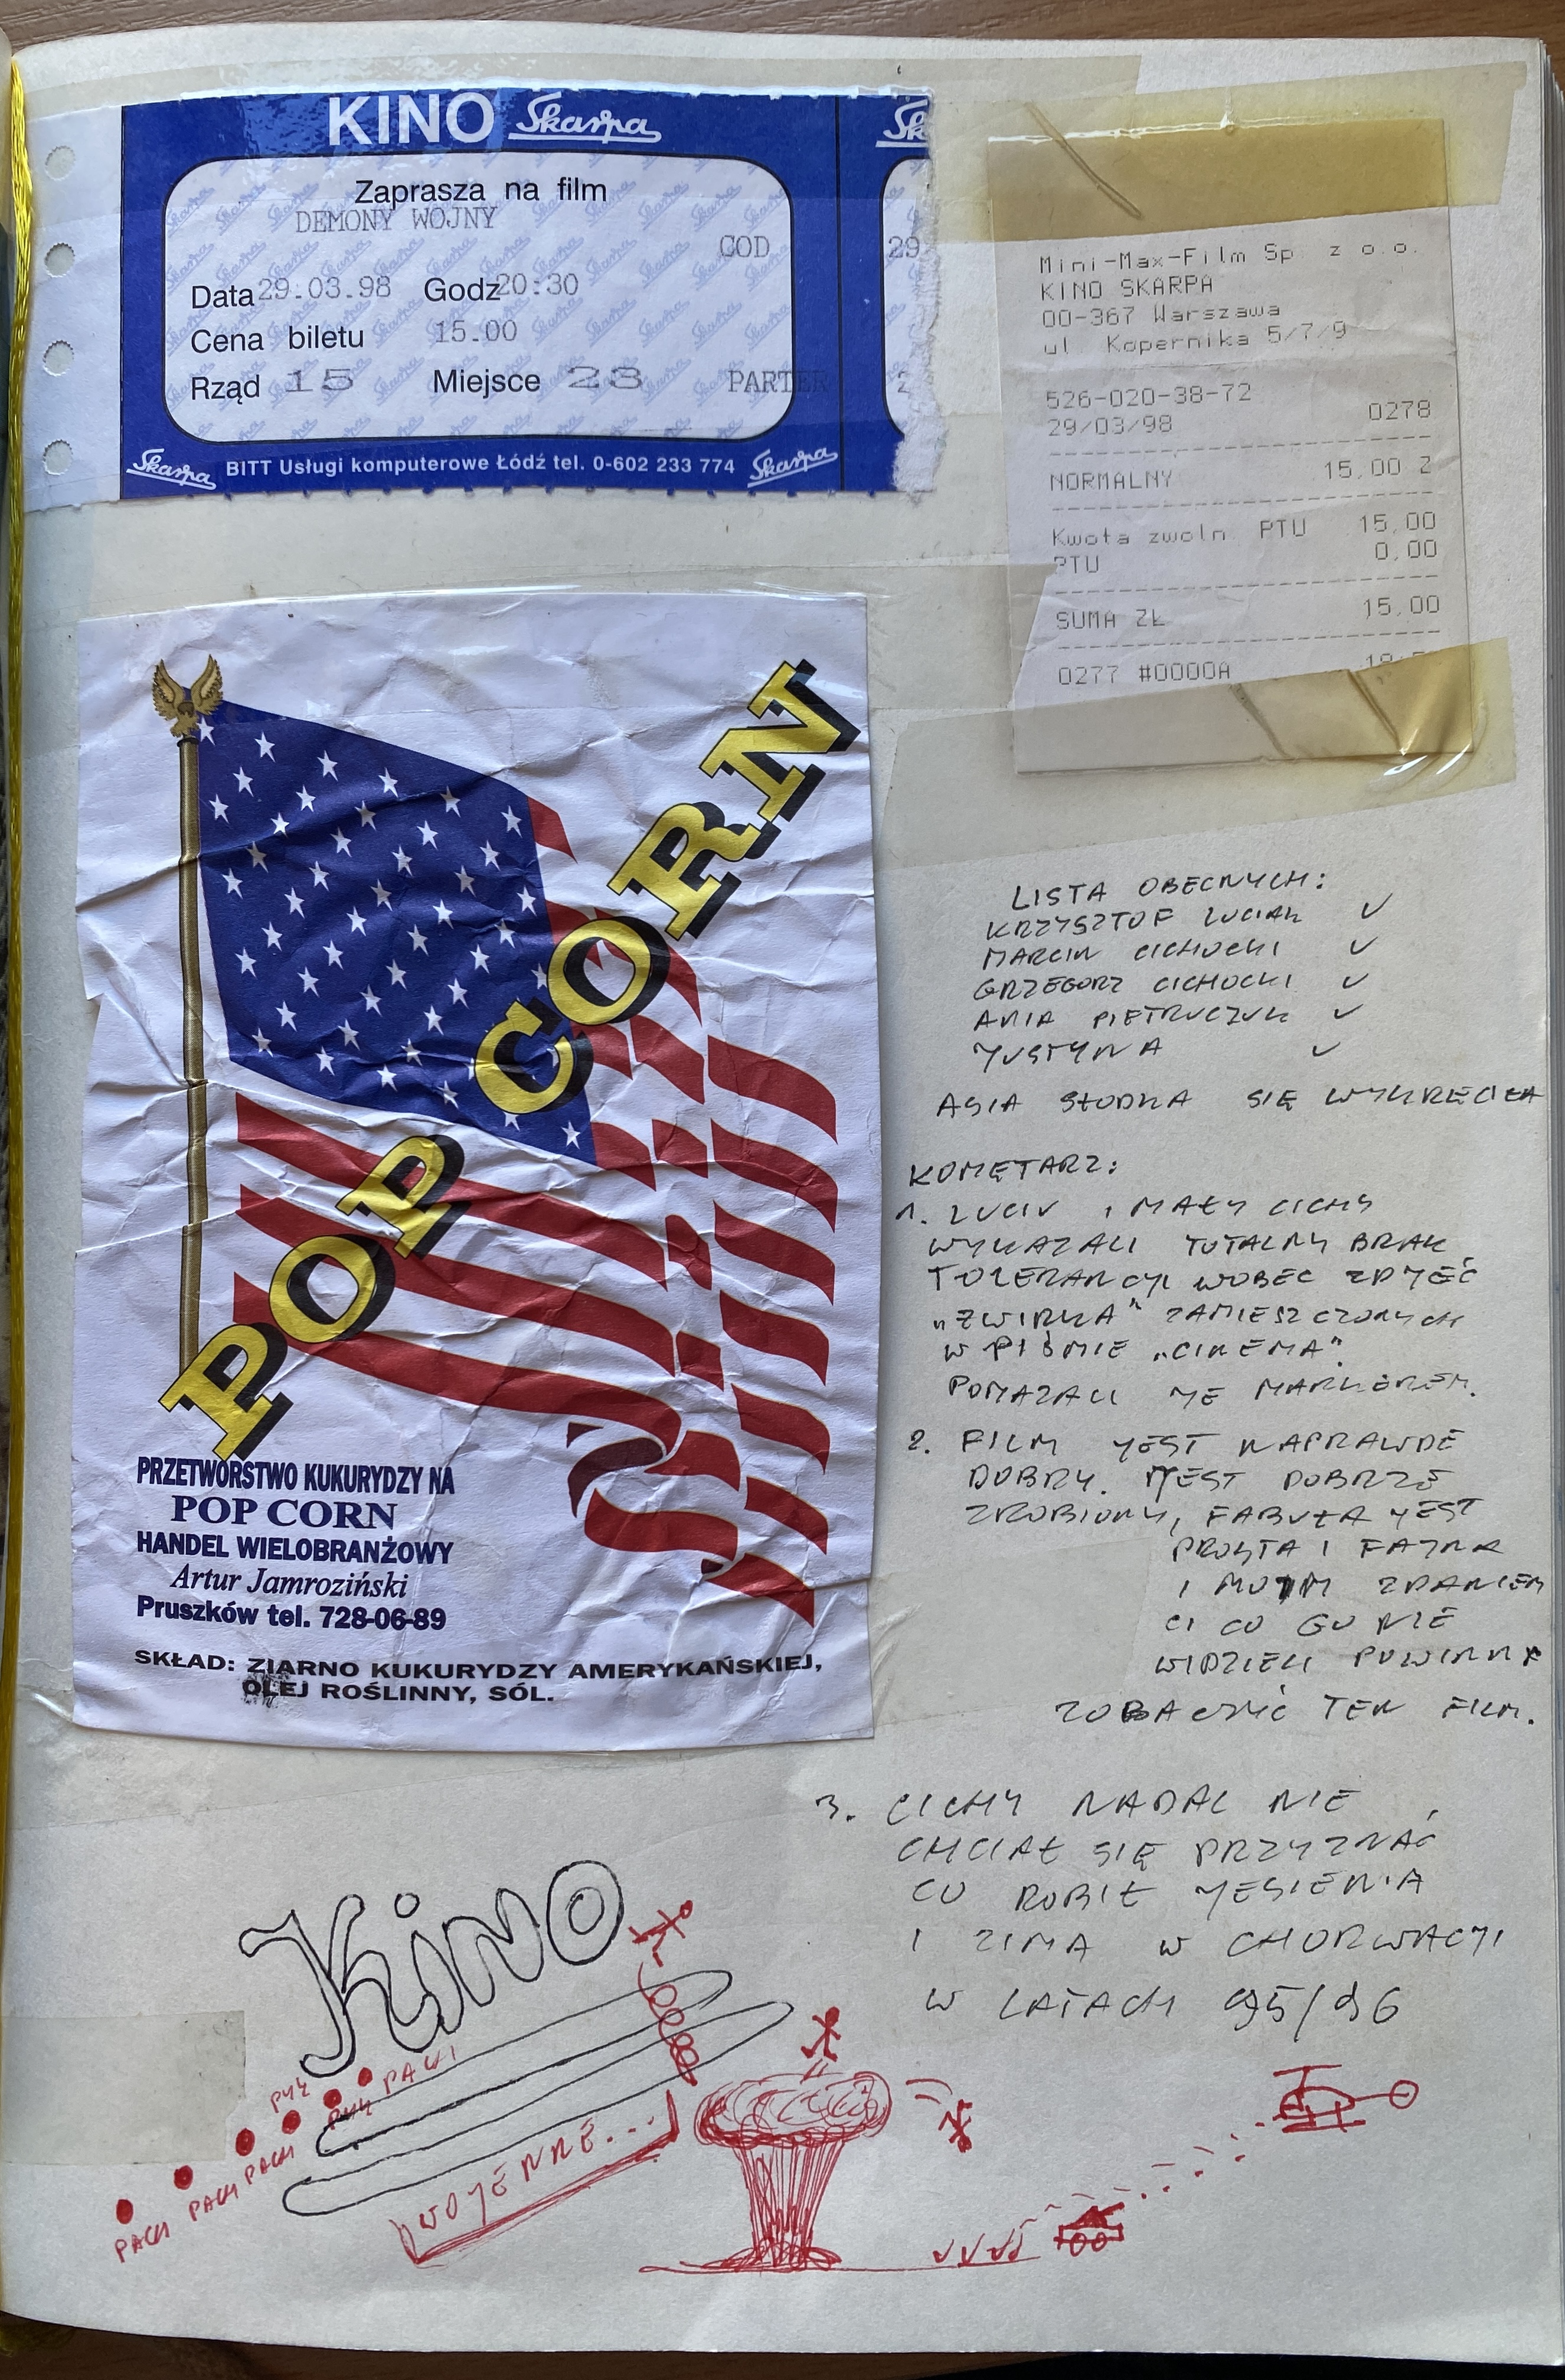 KINO Skarpa
Sk
Zaprasza na film
DEMONY WOJNY
COD
29
Data 29.03.98 Godz 20:30
Cena biletu 15.00
Rząd 15 Miejsce 23 PARTER
2
Skarpa BITT Usługi komputerowe Łódź tel. 0-602 233 774 Skarpa
Mini-Max-Film Sp. z o.o.
KINO SKARPA
00-367 Warszawa
ul Kopernika 5/7/9
526-020-38-72
29/03/98 0278
NORMALNY 15,00 Z
Kwota zwoln. PTU 15,00
PTU 0,00
SUMA ZŁ 15,00
0277 #0000A
POP CORN
PRZETWÓRSTWO KUKURYDZY NA
POP CORN
HANDEL WIELOBRANŻOWY
Artur Jamroziński
Pruszków tel. 728-06-89
SKŁAD: ZIARNO KUKURYDZY AMERYKAŃSKIEJ,
OLEJ ROŚLINNY, SÓL.
LISTA OBECNYCH:
KRZYSZTOF LUCIAK ✓
MARCIN CICHOCKI ✓
GRZEGORZ CICHOCKI ✓
ANIA PIETRUCZUK ✓
JUSTYNA ✓
ASIA SŁODKA SIĘ WYKRĘCIŁA
KOMĘTARZ:
1. LUCIU I MAŁY CICHY
WYKAZALI TOTALNY BRAK
TOLERANCJI WOBEC ZDJĘĆ
„ŻWIRKA" ZAMIESZCZONYCH
W PIŚMIE „CINEMA".
POMAZALI JE MARKEREM.
2. FILM JEST NAPRAWDĘ
DOBRY. JEST DOBRZE
ZROBIONY, FABUŁA JEST
PROSTA I FAJNA
I MOIM ZDANIEM
CI CO GO NIE
WIDZIELI POWINNI
ZOBACZYĆ TEN FILM.
3. CICHY NADAL NIE
CHCIAŁ SIĘ PRZYZNAĆ
CO ROBIŁ JESIENIĄ
I ZIMĄ W CHORWACJI
W LATACH 95/96
Kino
WOJENNE...
PYK PYK PACH
PACH PACH PACH